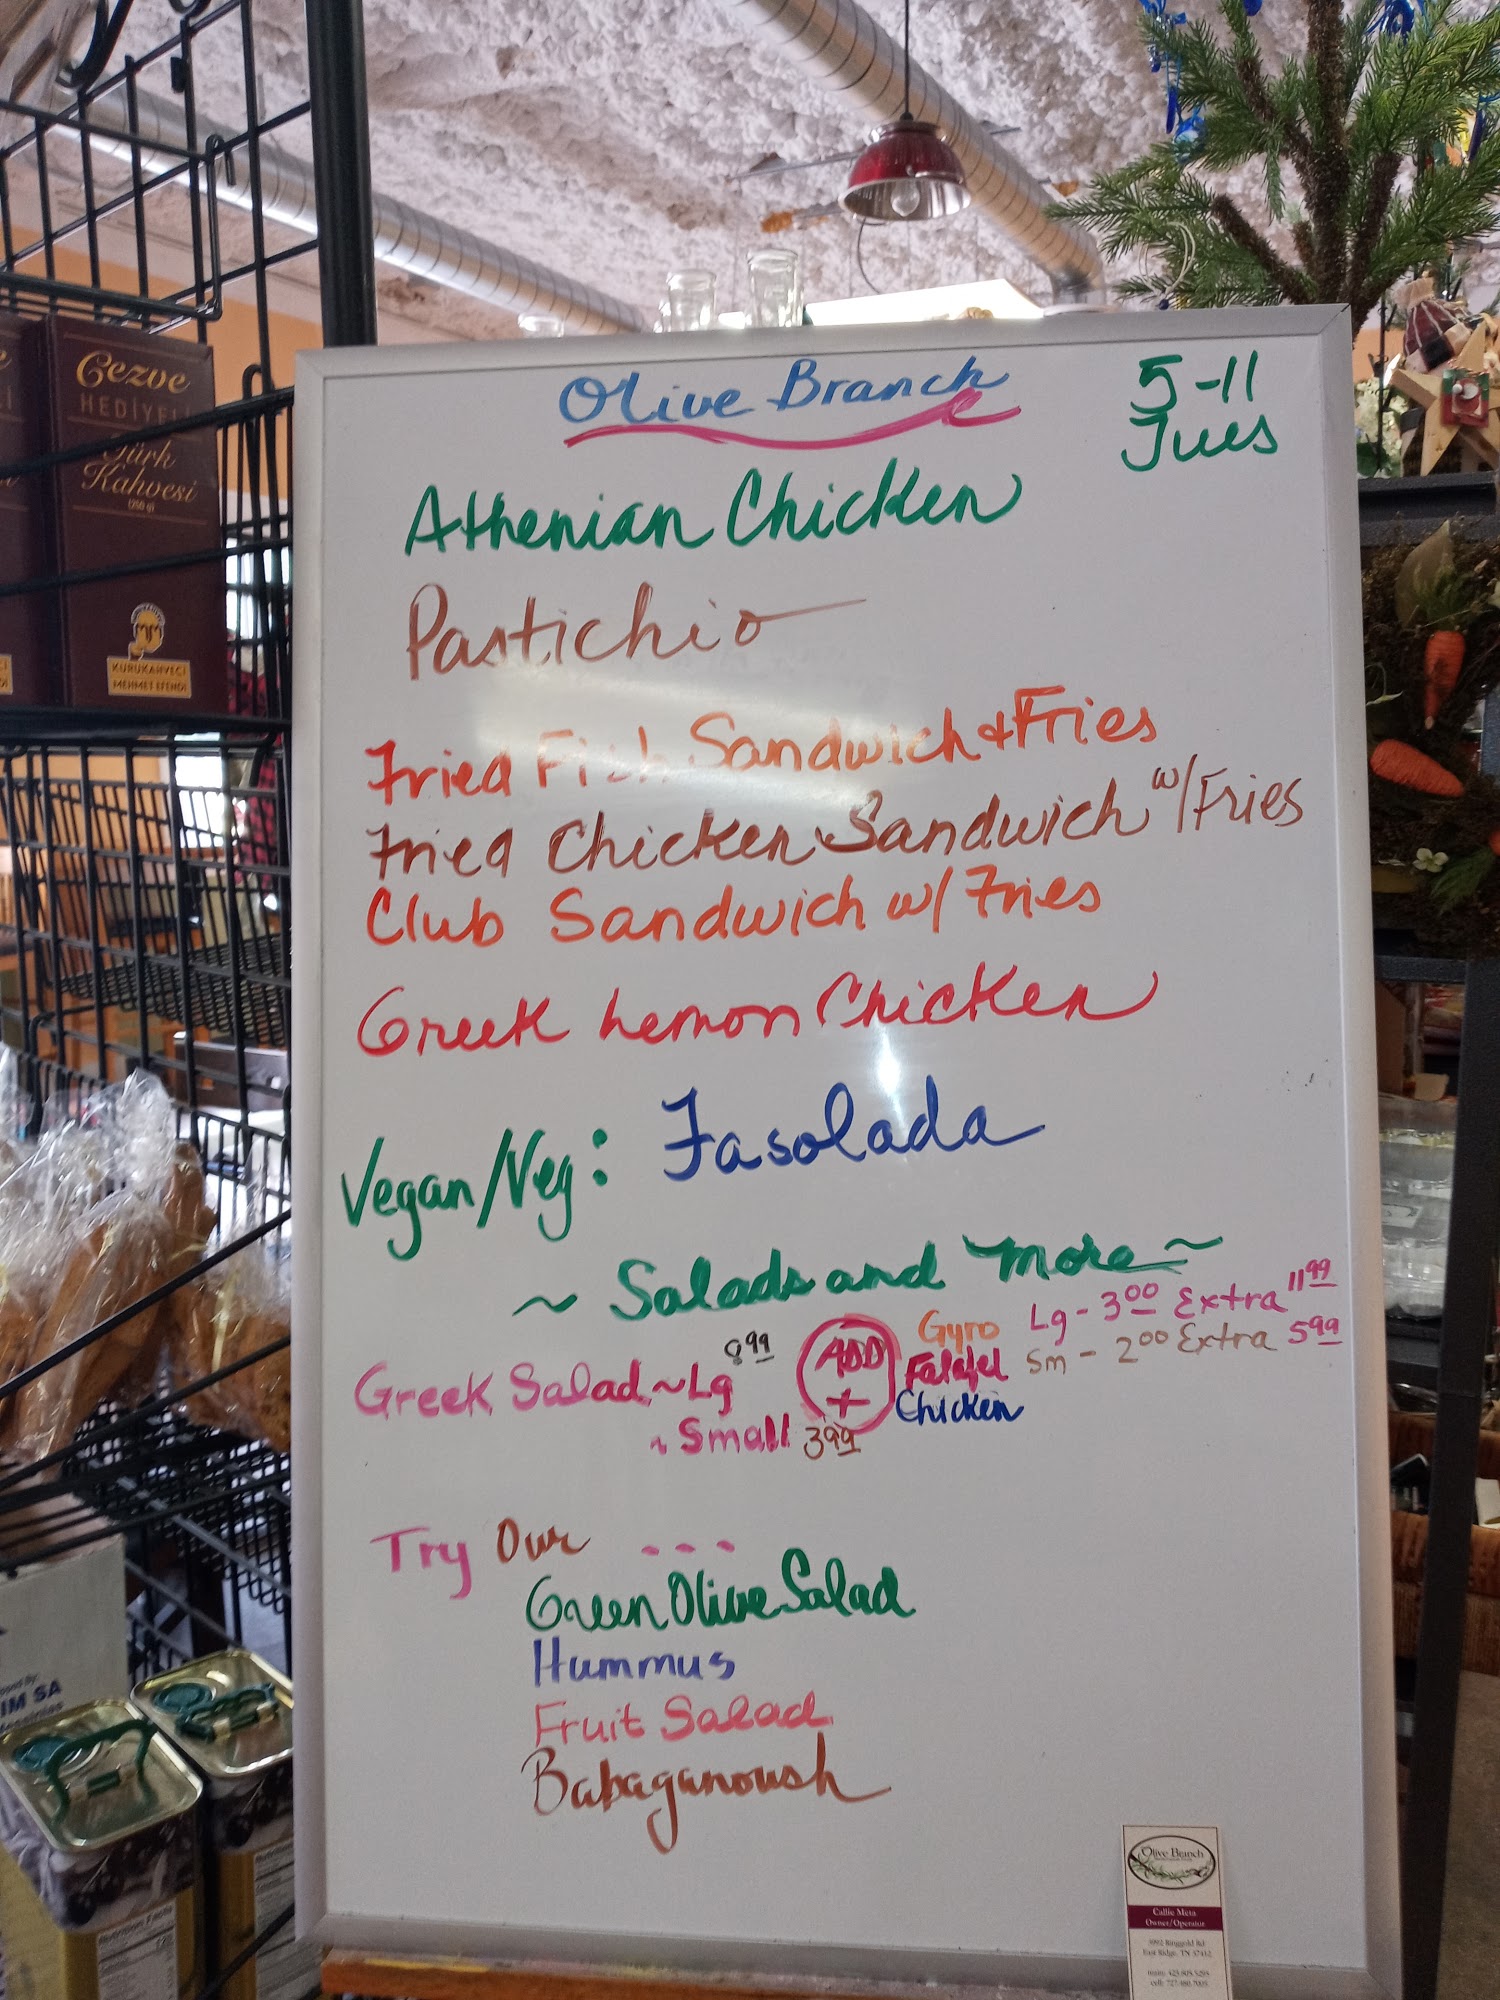 Olive Branch
5-11
Tues
Athenian Chicken
Pastichio
Fried Fish Sandwich + Fries
Fried Chicken Sandwich w/ Fries
Club Sandwich w/ Fries
Greek Lemon Chicken
Vegan/Veg: Fasolada
~ Salads and more ~
Greek Salad ~ Lg 8.99
~ Small 3.99
ADD
+
Gyro
Falafel
Chicken
Lg - 3.00 Extra 11.99
Sm - 2.00 Extra 5.99
Try Our ...
Green Olive Salad
Hummus
Fruit Salad
Babaganoush
Cezve
HEDİYELİ
Türk
Kahvesi
(250 g)
KURUKAHVECİ
MEHMET EFENDİ
IM SA
Nutrition Facts
Olive Branch
Callie Meta
Owner/Operator
5992 Ringgold Rd
East Ridge, TN 37412